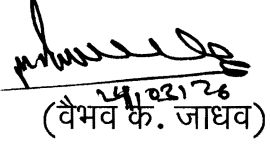 24/02/26
(वैभव के. जाधव)